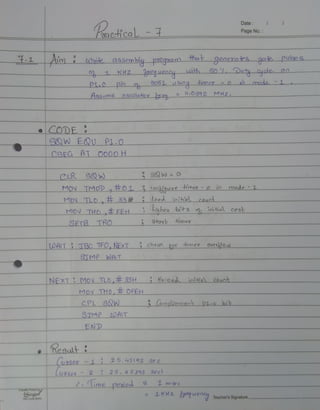 Date : / /
Page No. :
Practical - 7
7-1 Aim : write assembly program that generates gate pulses
of 1 KHZ frequency with 50% Duty cycle on
P1.0 pin of 8051 using timer - 0 in mode - 1.
Assume oscillator freq = 11.0592 MHz.
• CODE :
SQW EQU P1.0
CSEG AT 0000H
CLR SQW ; SQW = 0
MOV TMOD, #01 ; configure timer - 0 in mode - 1
MOV TL0, # 33H ; load initial count
MOV TH0, # FEH ; higher bits of initial count
SETB TR0 ; start timer
WAIT : JBC TF0, NEXT ; check for timer overflow
SJMP WAIT
NEXT : MOV TL0, # 33H ; Reload initial count
MOV TH0, # 0FEH
CPL SQW ; Complement P1.0 bit
SJMP WAIT
END
• Result :
Cursor - 1 :
Cursor - 2 :
∴ Time period = 1 msec
= 1KHz frequency
Teacher's Signature